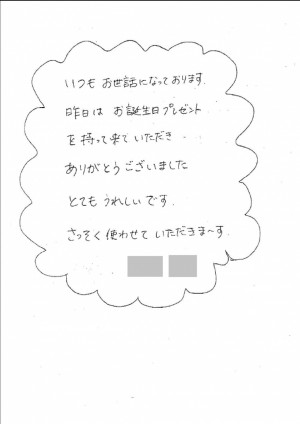 いつも お世話になっております.
昨日は お誕生日プレゼント
を持って来ていただき.
ありがとうございました
とても うれしいです.
さっそく 使わせて いただきま〜す.